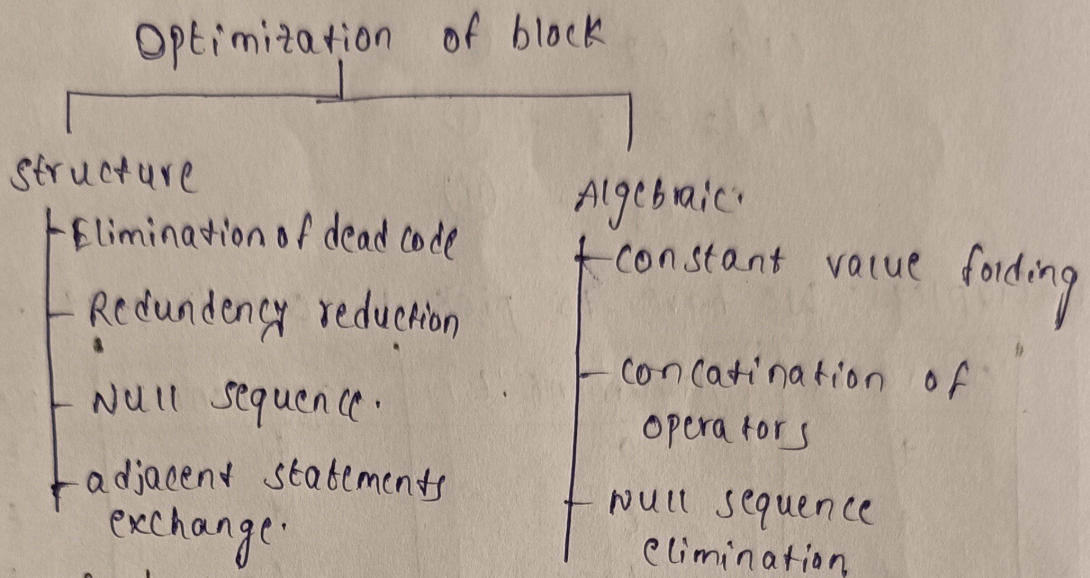 Optimization of block
Structure
Elimination of dead code
Redundency reduction
Null sequence.
adjacent statements
exchange.
Algebraic.
constant value folding
concatination of
operators
Null sequence
elimination